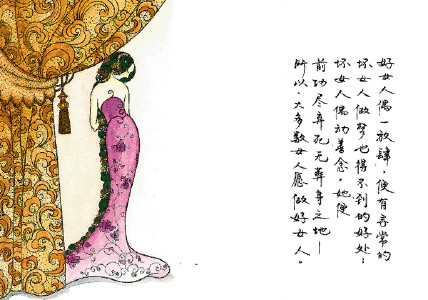 好女人偶一放肆，便有寻常的
坏女人做梦也得不到的好处；
坏女人偶动善念，她便
前功尽弃死无葬身之地—
所以，大多数女人愿做好女人。